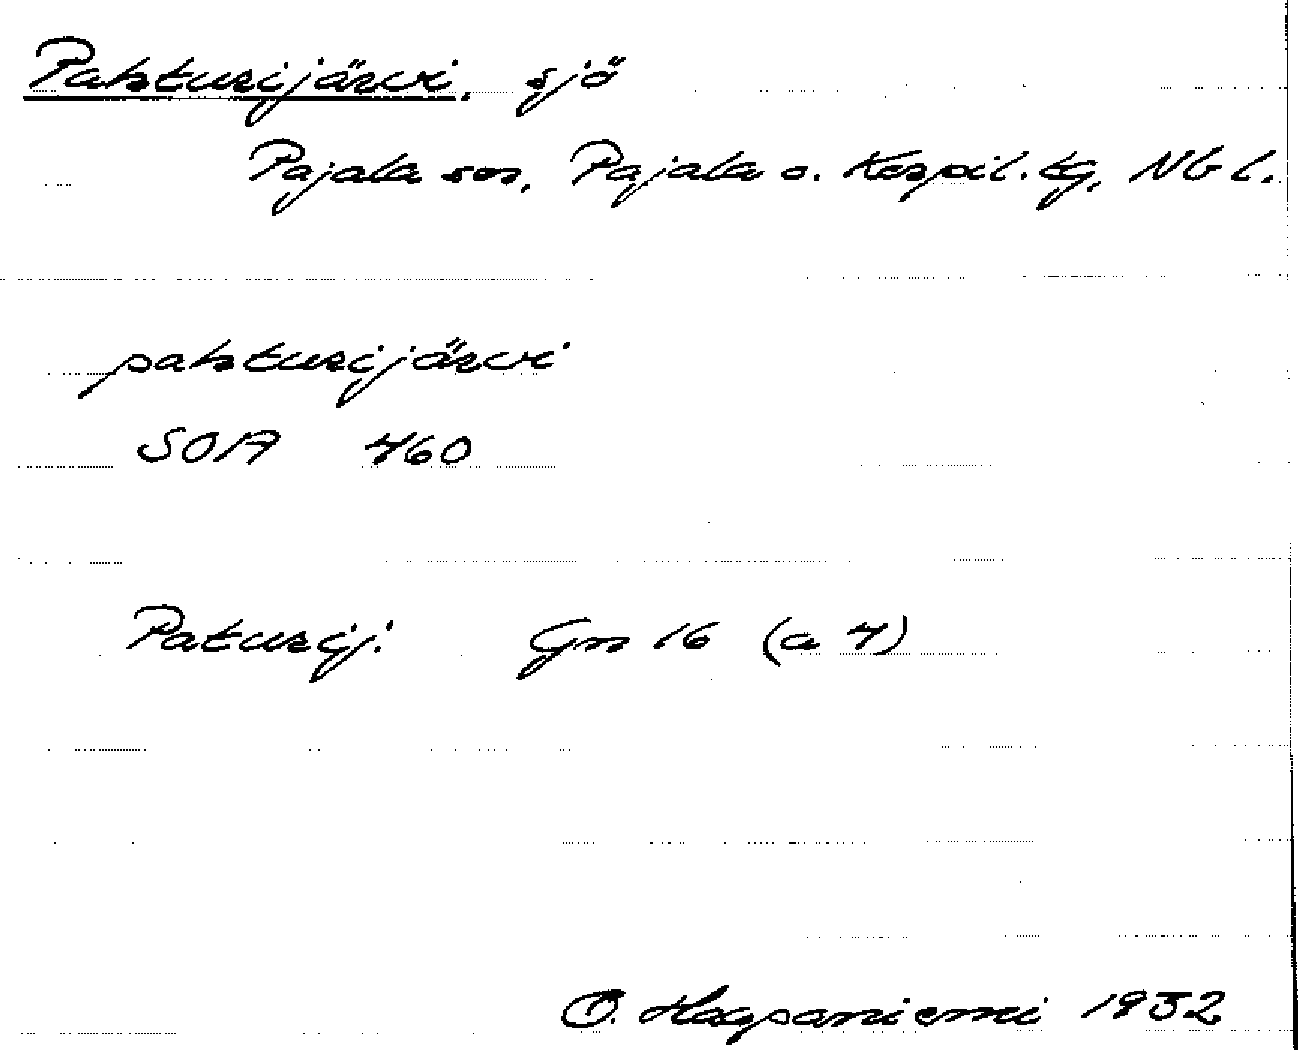 Patsturijärvi, sjö
Pajala sn, Pajala o. Korpil. tg, Nb l.
patsturijärvi
SOA 460
Paturij. Gn 16 (a 4)
O. Haapaniemi 1932